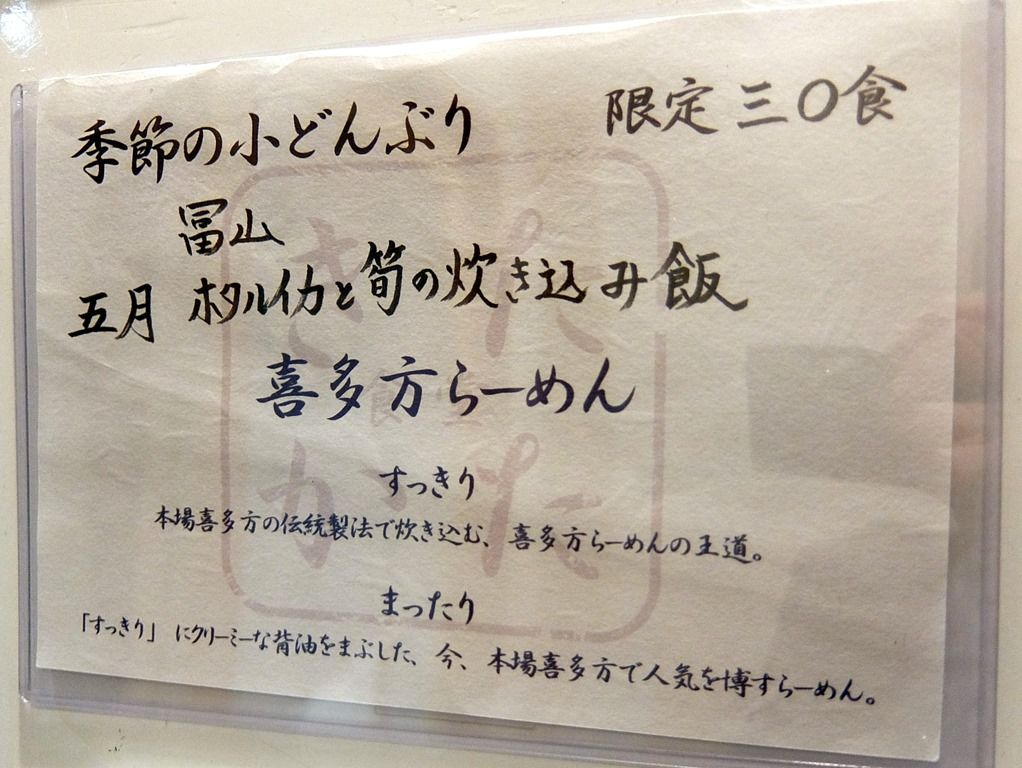 季節の小どんぶり 限定 三〇食
冨山
五月 ホタルイカと筍の炊き込み飯
喜多方らーめん
すっきり
本場喜多方の伝統製法で炊き込む、喜多方らーめんの王道。
まったり
「すっきり」にクリーミーな背油をまぶした、今、本場喜多方で人気を博すらーめん。